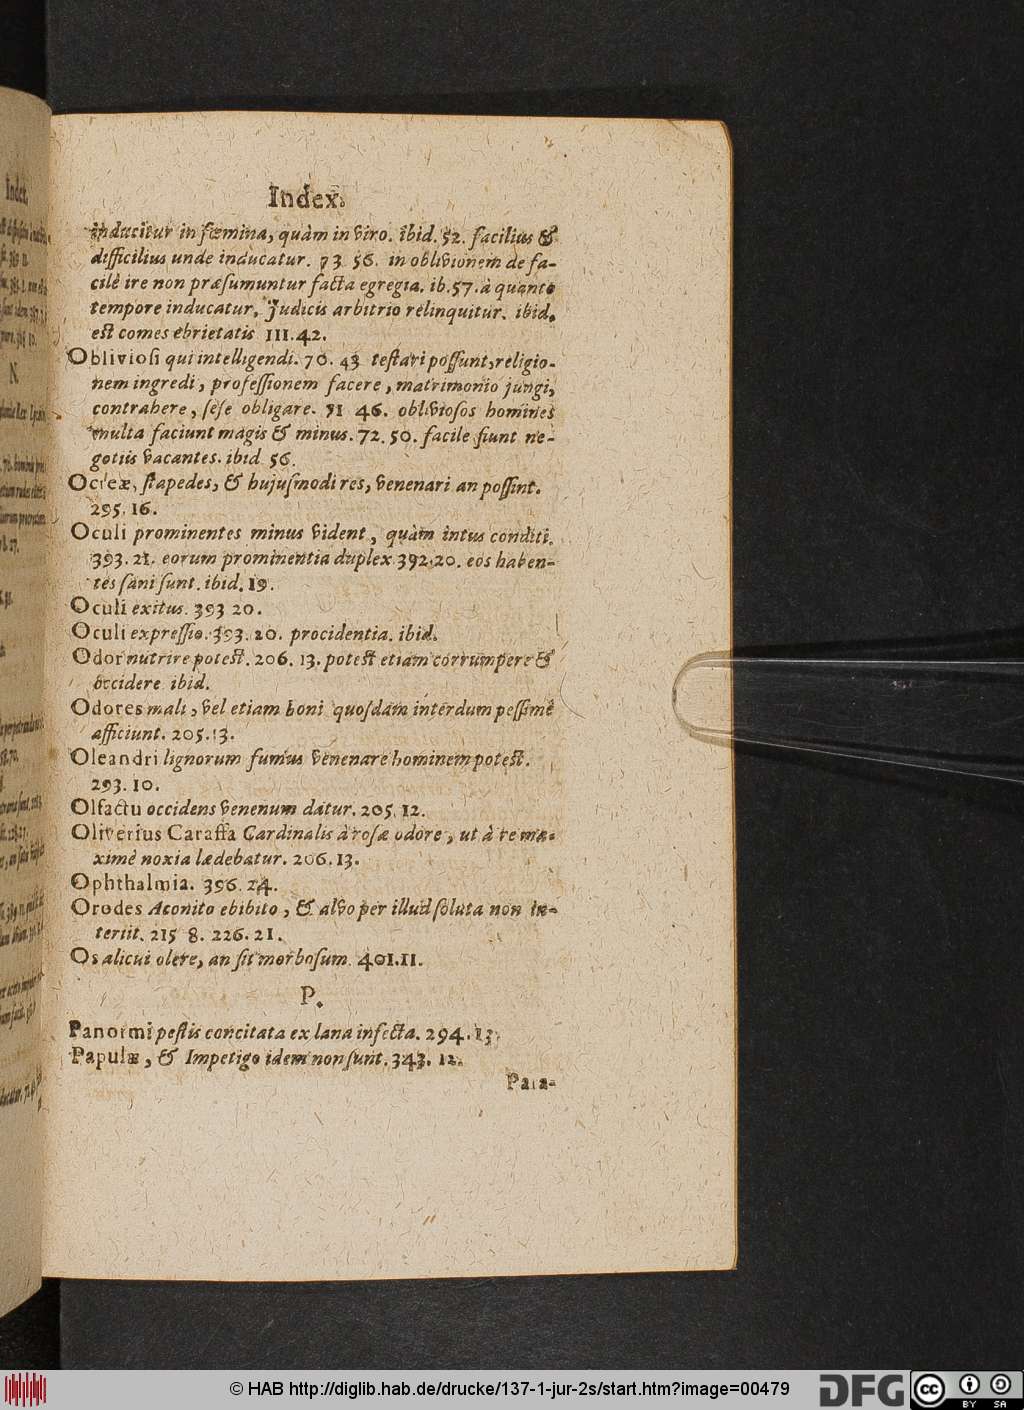 Index.
inducitur in fœmina, quàm in viro. ibid. 52. facilius &
difficilius unde inducatur. 73. 56. in oblivionem de fa-
cilè ire non præsumuntur facta egregia. ib. 57. à quanto
tempore inducatur, Judicis arbitrio relinquitur. ibid.
est comes ebrietatis 111. 42.
Obliviosi qui intelligendi. 70. 43 testari possunt, religio-
nem ingredi, professionem facere, matrimonio jungi,
contrahere, sese obligare. 71 46. obliviosos homines
multa faciunt magis & minus. 72. 50. facile fiunt ne-
gotiis vacantes. ibid. 56.
Ocreæ, stapedes, & hujusmodi res, venenari an possint.
295. 16.
Oculi prominentes minus vident, quàm intus conditi.
393. 21. eorum prominentia duplex 392. 20. eos haben-
tes sani sunt. ibid. 19.
Oculi exitus. 393 20.
Oculi expressio. 393. 20. procidentia. ibid.
Odor nutrire potest. 206. 13. potest etiam corrumpere &
occidere ibid.
Odores mali, vel etiam boni quosdam interdum pessimè
afficiunt. 205. 13.
Oleandri lignorum fumus venenare hominem potest.
293. 10.
Olfactu occidens venenum datur. 205. 12.
Oliverius Caraffa Cardinalis à rosæ odore, ut à re ma-
ximè noxia lædebatur. 206. 13.
Ophthalmia. 396. 24.
Orodes Aconito ebibito, & alvo per illud soluta non in-
teriit. 215 8. 226. 21.
Os alicui olere, an sit morbosum. 401. 11.
P.
Panormi pestis concitata ex lana infecta. 294. 13.
Papulæ, & Impetigo idem non sunt. 343. 12.
Para-
© HAB http://diglib.hab.de/drucke/137-1-jur-2s/start.htm?image=00479
DFG
cc BY SA